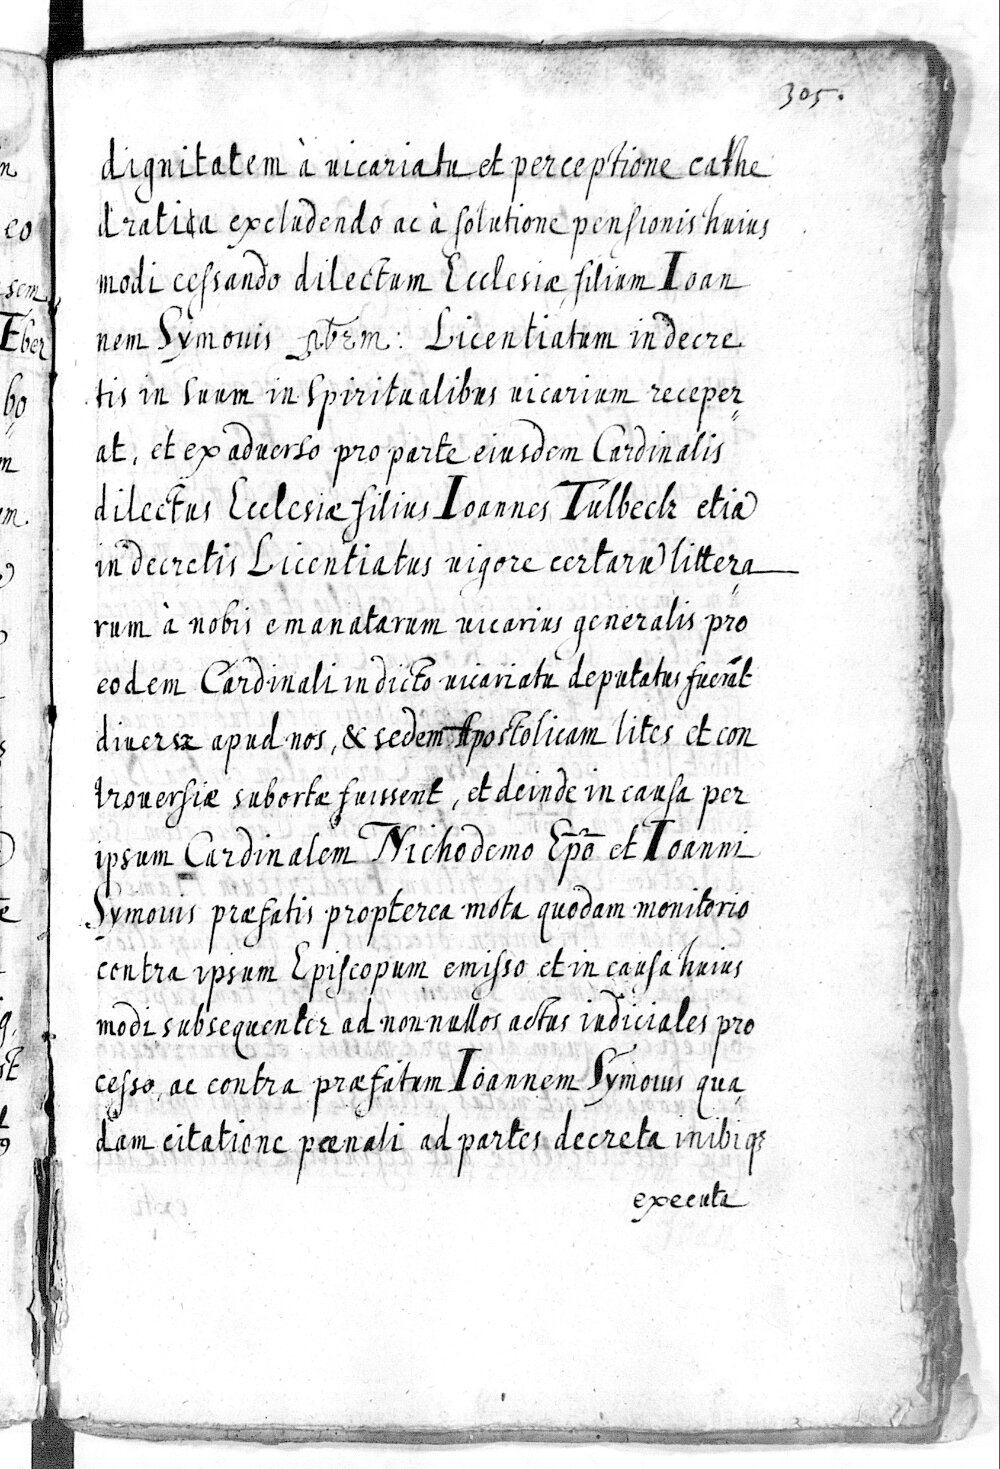 305.
dignitatem à vicariatu et perceptione cathe
dratica excludendo ac à solutione pensionis huius
modi cessando dilectum Ecclesiæ filium Ioan
nem Symouis Licentiatum in decre
tis in suum in spiritualibus uicarium receper=
at, et ex aduerso pro parte eiusdem Cardinalis
dilectus Ecclesiæ filius Ioannes Tulbeck etiã
in decretis Licentiatus uigore certarũ littera=
rum à nobis emanatarum uicarius generalis pro
eodem Cardinali in dicto uicariatu deputatus fuerãt
diuersæ apud nos, & sedem Apostolicam lites et con
trouersiæ subortæ fuissent, et deinde in causa per
ipsum Cardinalem Nichodemo Epõ et Ioanni
Symouis præfatis propterea mota quodam monitorio
contra ipsum Episcopum emisso et in causa huius
modi subsequenter ad nonnullos actus iudiciales pro
cesso, ac contra præfatum Ioannem Symouis qua
dam citatione pœnali ad partes decreta inibiq;
executa